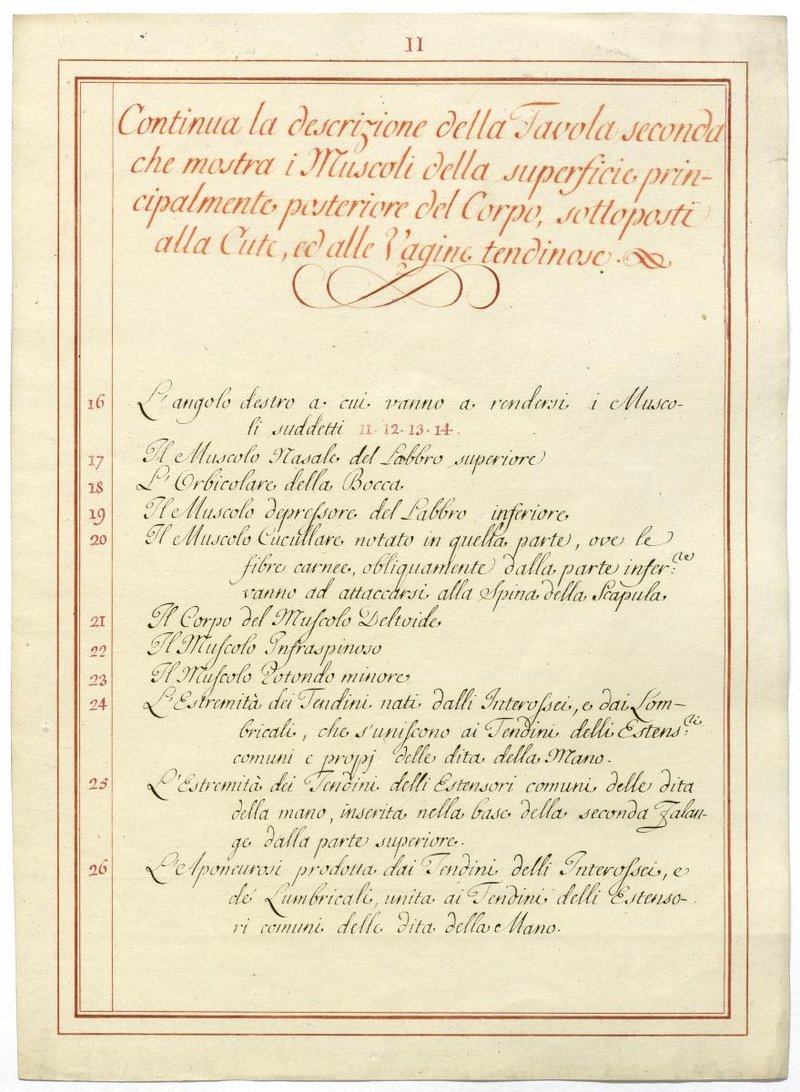 II
Continua la descrizione della Tavola seconda
che mostra i Muscoli della superficie prin-
cipalmente posteriore del Corpo, sottoposti
alla Cute, ed alle Vagine tendinose.
16 L'angolo destro a cui vanno a rendersi i Musco-
li suddetti 11. 12. 13. 14.
17 Il Muscolo Nasale del Labbro superiore
18 L'Orbicolare della Bocca
19 Il Muscolo depreſsore del Labbro inferiore
20 Il Muscolo Cucullare notato in queſta parte, ove le
fibre carnee, obliquamente dalla parte infer:re
vanno ad attaccarsi alla Spina della Scapula
21 Il Corpo del Muſcolo Deltoide
22 Il Muſcolo Infraspinoso
23 Il Muſcolo Rotondo minore
24 L'Estremità dei Tendini nati dalli Interoſsei, e dai Lom-
bricali, che s'uniſcono ai Tendini delli Estens:ri
comuni e propj delle dita della Mano.
25 L'Estremità dei Tendini delli Estensori comuni delle dita
della mano, inserita nella base della seconda Falan-
ge dalla parte superiore.
26 L'Aponeurosi prodotta dai Tendini delli Interoſsei, e
de' Lumbricali, unita ai Tendini delli Estenso-
ri comuni delle dita della Mano.